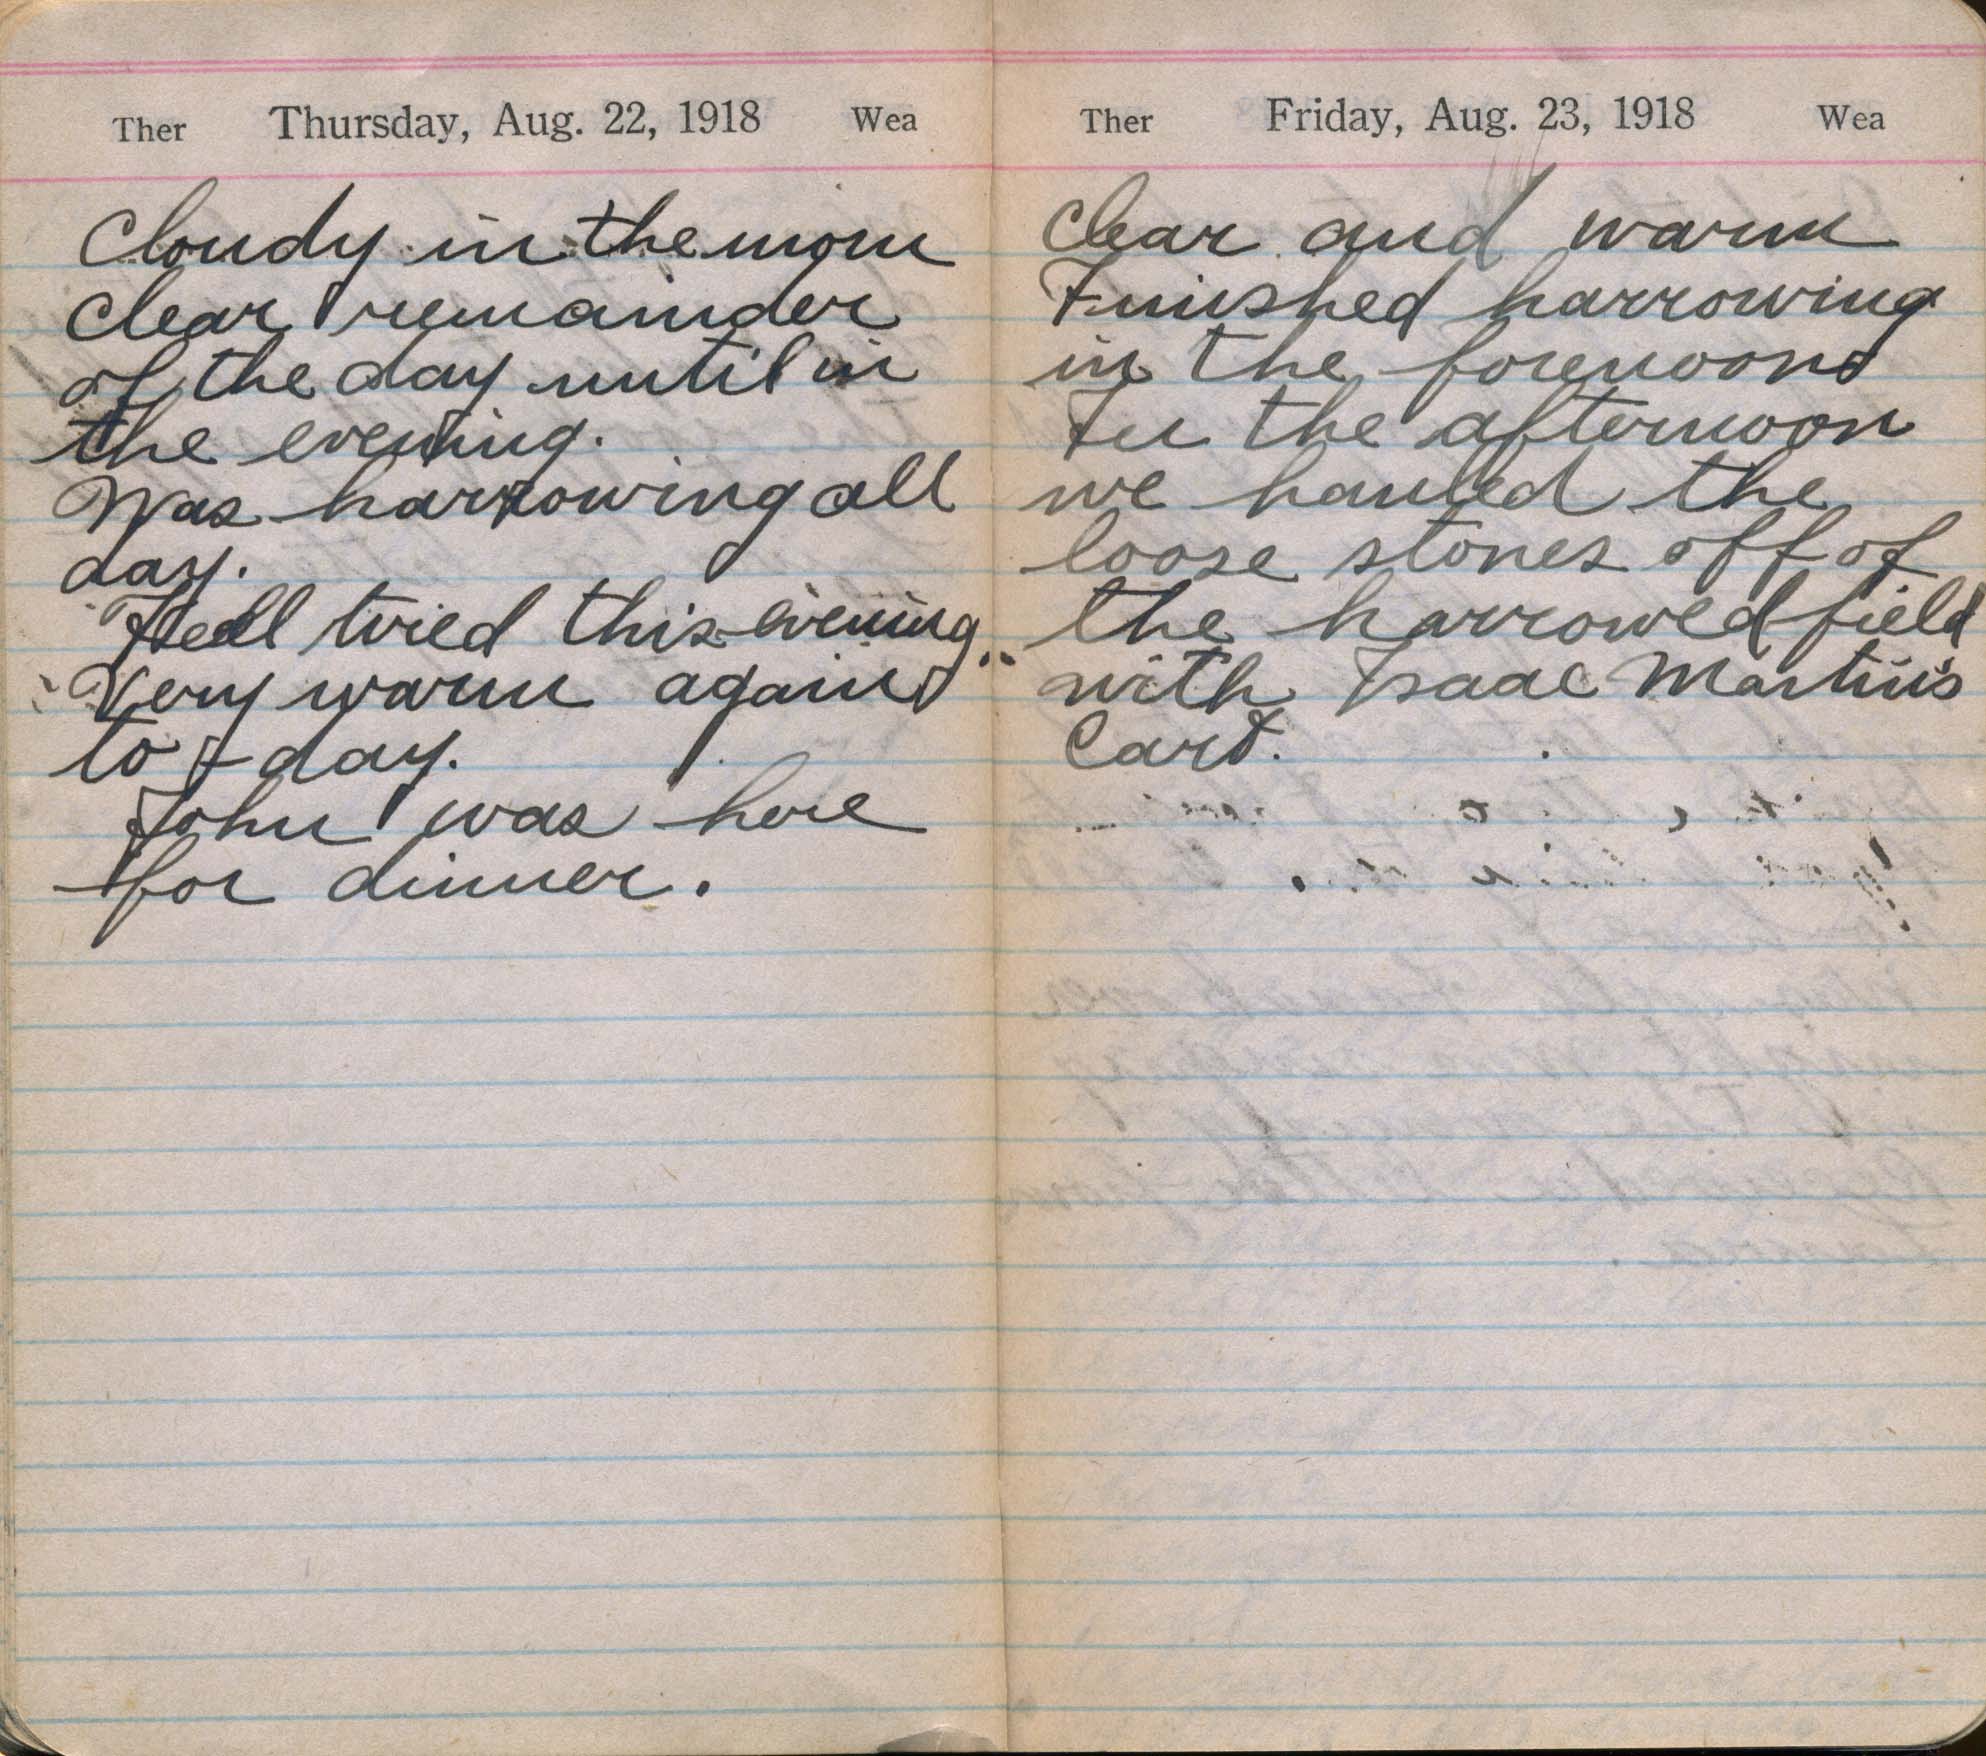 Ther Thursday, Aug. 22, 1918 Wea
Cloudy in the morn
clear remainder
of the day until in
the evening.
Was harrowing all
day.
Feell tired this evening
Very warm again
to-day.
John was here
for dinner.
Ther Friday, Aug. 23, 1918 Wea
Clear and warm
Finished harrowing
in the forenoon
In the afternoon
we hauled the
loose stones off of
the harrowed field
with Isaac Martin's
Cart.